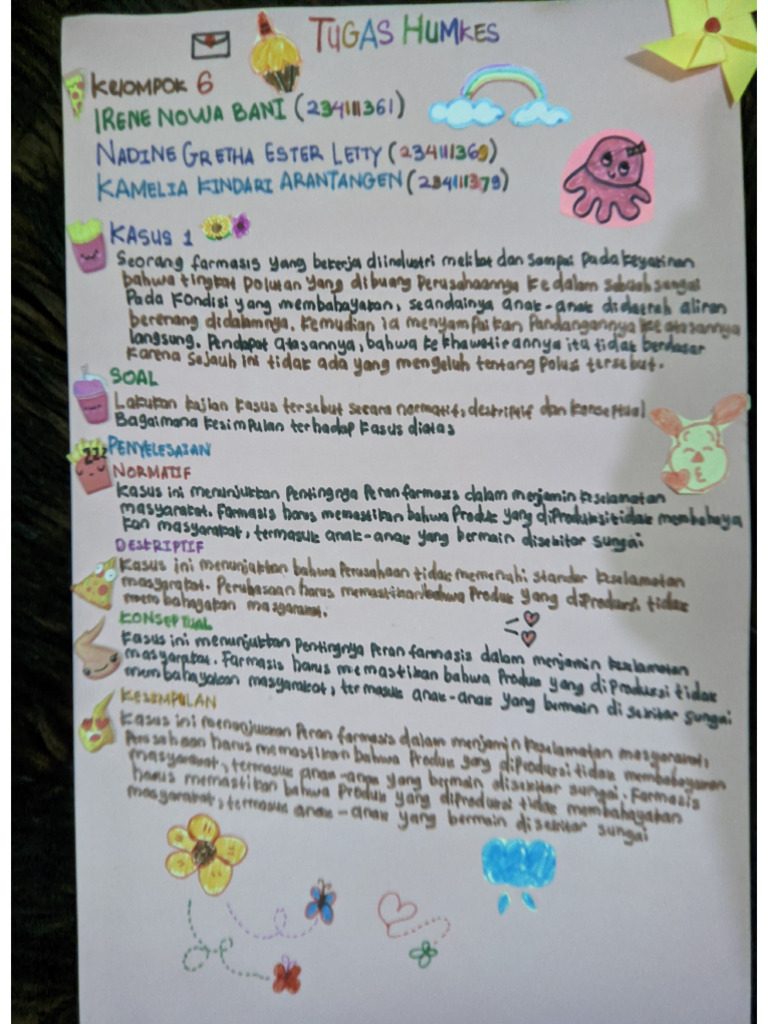 TUGAS HUMKES
KELOMPOK 6
IRENE NOWA BANI (234111361)
NADINE GRETHA ESTER LETTY (234111369)
KAMELIA KINDARI ARANTANGEN (234111379)
KASUS 1
Seorang farmasis yang bekerja diindustri melihat dan sampai pada keyakinan
bahwa tingkat polutan yang dibuang perusahaannya ke dalam sebuah sungai
pada kondisi yang membahayakan, seandainya anak-anak didaerah aliran
berenang didalamnya. Kemudian ia menyampaikan pandangannya ke atasannya
langsung. Pendapat atasannya, bahwa kekhawatirannya itu tidak berdasar
karena sejauh ini tidak ada yang mengeluh tentang polusi tersebut.
SOAL
Lakukan kajian kasus tersebut secara normatif, deskriptif dan konseptual
Bagaimana kesimpulan terhadap kasus diatas
PENYELESAIAN
NORMATIF
Kasus ini menunjukkan pentingnya peran farmasis dalam menjamin keselamatan
masyarakat. Farmasis harus memastikan bahwa produk yang diproduksi tidak membahaya
kan masyarakat, termasuk anak-anak yang bermain disekitar sungai
DESKRIPTIF
Kasus ini menunjukkan bahwa perusahaan tidak memenuhi standar keselamatan
masyarakat. Perusahaan harus memastikan bahwa produk yang diproduksi tidak
membahayakan masyarakat.
KONSEPTUAL
Kasus ini menunjukkan pentingnya peran farmasis dalam menjamin keselamatan
masyarakat. Farmasis harus memastikan bahwa produk yang diproduksi tidak
membahayakan masyarakat, termasuk anak-anak yang bermain disekitar sungai
KESIMPULAN
Kasus ini menunjukkan peran farmasis dalam menjamin keselamatan masyarakat,
Perusahaan harus memastikan bahwa produk yang diproduksi tidak membahayakan
masyarakat, termasuk anak-anak yang bermain disekitar sungai. Farmasis
harus memastikan bahwa produk yang diproduksi tidak membahayakan
masyarakat, termasuk anak-anak yang bermain disekitar sungai